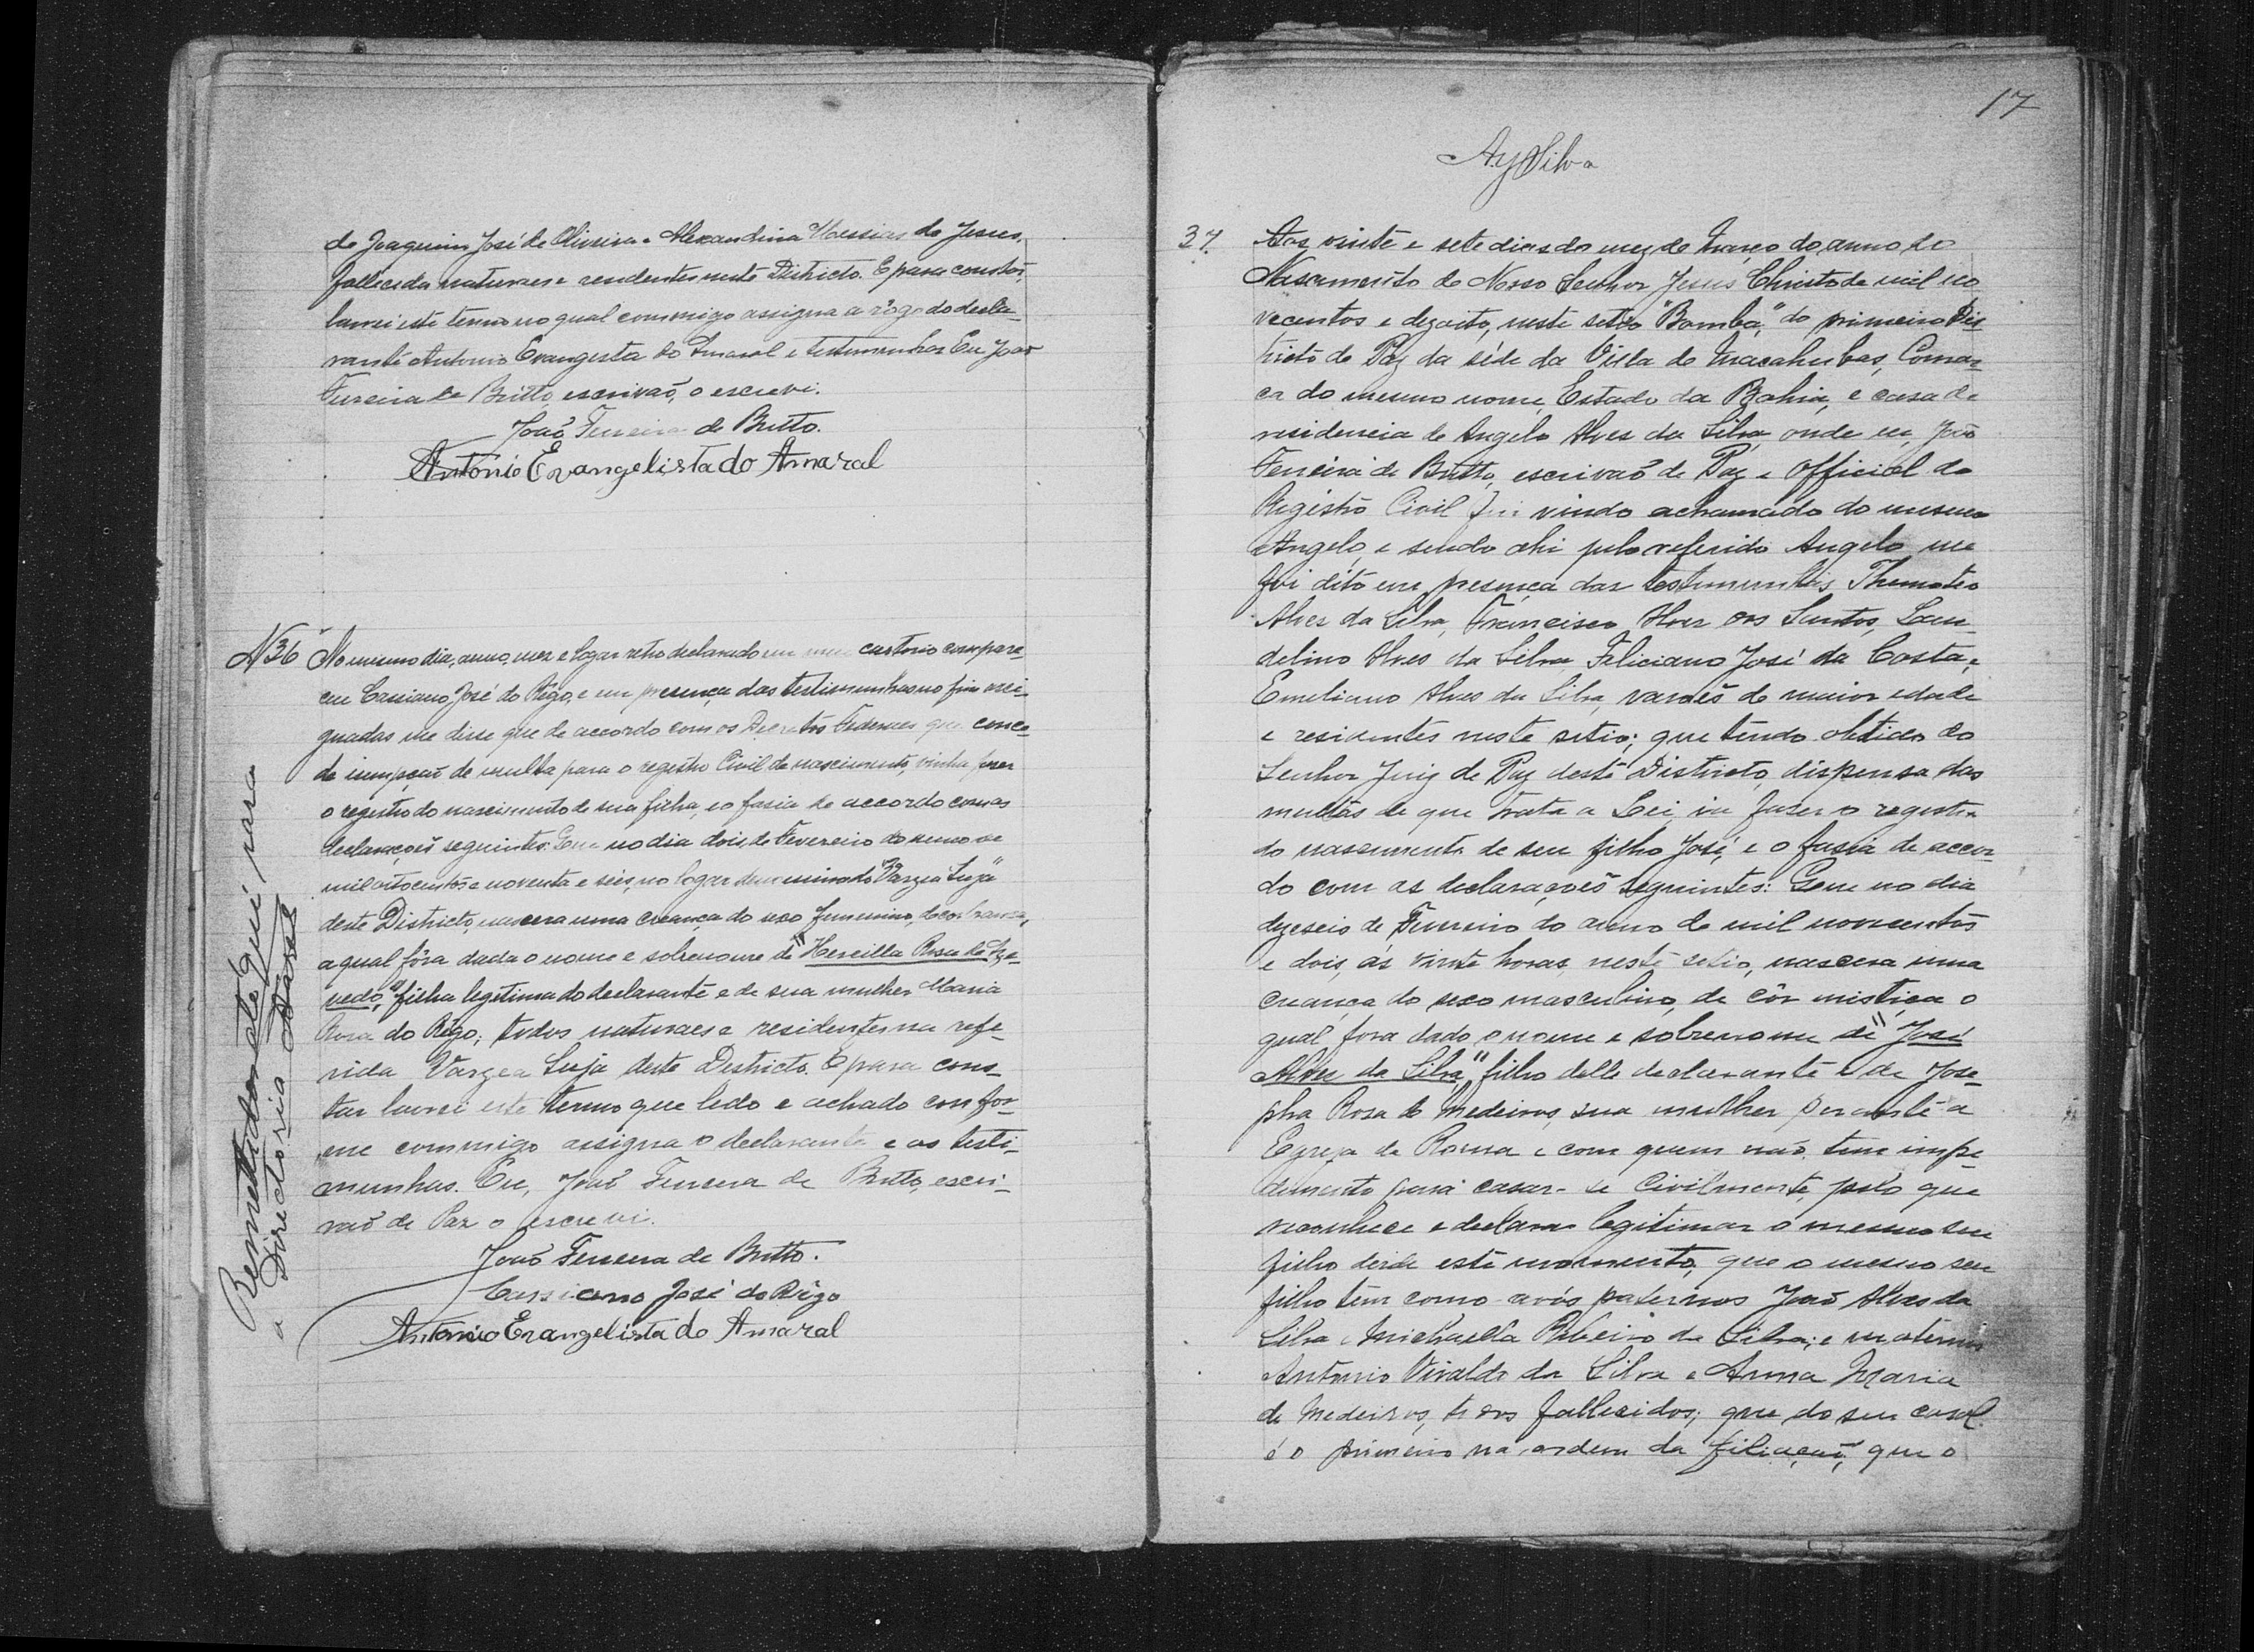 de Joaquim José de Oliveira e Alexandrina Messias de Jesus,
fallecida naturaes e residentes neste Districto. E para constar,
lavrei este termo no qual commigo assigna a rôgo do decla-
rante Antonio Evangesta do Amaral e testimunhas Eu João
Ferreira de Britto, escrivaõ, o escrevi.
João Ferreira de Britto.
Antonio Evangelista do Amaral
N 36 No mesmo dia, anno, mez e logar retro declarado em meu cartorio compare-
ceu Cassiano José do Rêgo, e em presença das testimunhas no fim assi-
gnadas me disse que de accordo com os Decretos Federaes que conce-
de isempçaõ de multa para o registro Civil de nascimento, vinha fazer
o registro do nascimento de sua filha, e o fasia de accordo com as
declaraçoẽs seguintes: Que no dia dois de Fevereiro do anno de
mil oitocentos e noventa e seis, no logar denominado "Vargea Suja"
deste Districto, nascera uma creança do sexo femenino, de côr branca,
a qual fôra dada o nome e sobrenome de "Hercilla Rosa de Aze-
vedo," filha legitima do declarante e de sua mulher Maria
Rosa do Rêgo; todos naturaes e residentes na refe-
rida Vargea Suja deste Districto. E para cons-
tar lavrei este termo que lido e achado confor-
me commigo assigna o declarante e as testi-
munhas. Eu, João Ferreira de Britto, escri-
vaõ de Paz o escrevi.
João Ferreira de Britto.
Cassiano José do Rêgo
Antonio Evangelista do Amaral
Remettidos até qui para
a Directoria
17
AySilva
37. Aos vinte e sete dias do mez de Março do anno do
Nascimento de Nosso Senhor Jesus Christo de mil no
vecentos e dezoito, neste setio "Bomba," do primeiro Dis
tricto de Paz da séde da Villa de Macahubas, Comar-
ca do mesmo nome, Estado da Bahia, e casa de
residencia de Angelo Alves da Silva, onde eu, João
Ferreira de Britto, escrivaõ de Paz e Official do
Registro Civil fui vindo a chamado do mesmo
Angelo, e sendo ahi pelo referido Angelo me
foi dito em presença das testimunhas, Themoteo
Alves da Silva, Francisco Alves dos Santos, Lau-
delino Alves da Silva Feliciano José da Costa, e
Emeliano Alves da Silva, varoẽs de maior edade
e residentes neste setio; que tendo obtido do
Senhor Juiz de Paz deste Districto, dispensa das
multas de que trata a Lei, ia fazer o registro
do nascimento de seu filho José, e o fasia de accor-
do com as declaraçoẽs seguintes: Que no dia
dezeseis de Fevereiro do anno de mil novecentos
e dois, ás vinte horas, neste setio, nascera uma
creança do sexo masculino, de côr mistiça o
qual fora dado o nome e sobrenome de "José
Alves da Silva," filho delle declarante e de Jose-
pha Rosa de Medeiros, sua mulher perante a
Egreja de Roma e com quem naõ tem impe-
dimento para casar-se Civilmente, pelo que
reconhece e declara legitimar o mesmo seu
filho desde este momento, que o mesmo seu
filho tem como avós paternos João Alves da
Silva e Michaella Ribeiro da Silva; e maternos
Antonio Vivaldo da Silva e Anna Maria
de Medeiros, fallecidos; que do seu casal
é o primeiro na ordem da filiaçaõ, que o